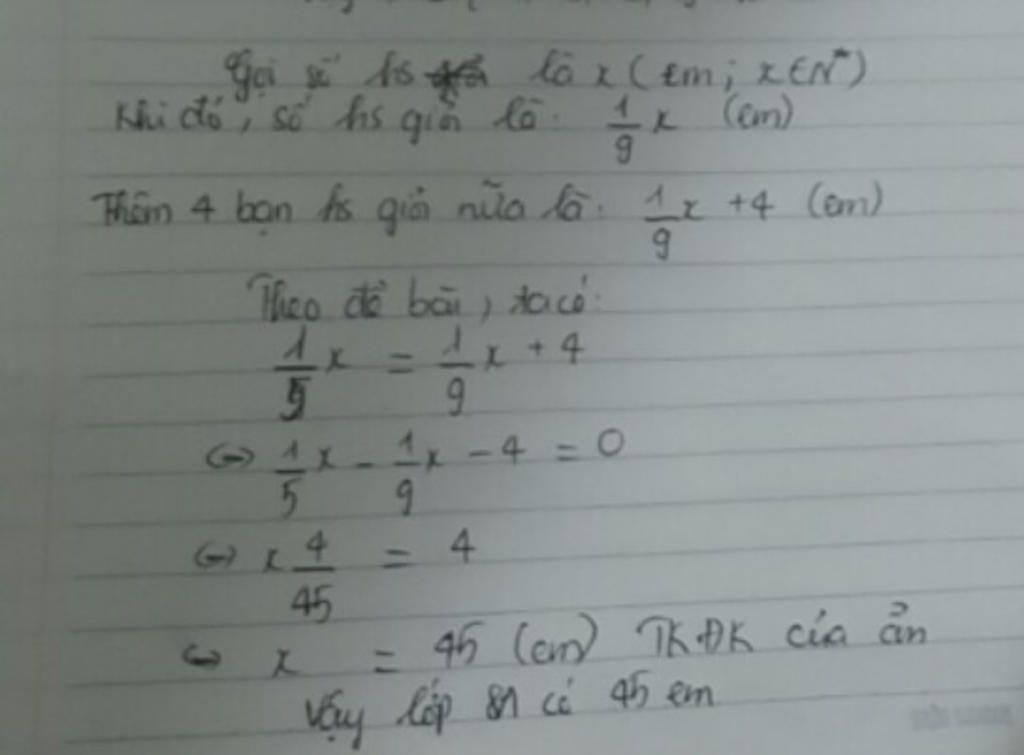 Gọi số hs là x (em; x ∈ N*)
Khi đó, số hs giỏi là: 1/9 x (em)
Thêm 4 bạn hs giỏi nữa là: 1/9 x + 4 (em)
Theo đề bài, ta có:
1/5 x = 1/9 x + 4
(=) 1/5 x - 1/9 x - 4 = 0
(=) x 4/45 = 4
(=) x = 45 (em) TKĐK của ẩn
Vậy lớp 8A có 45 em